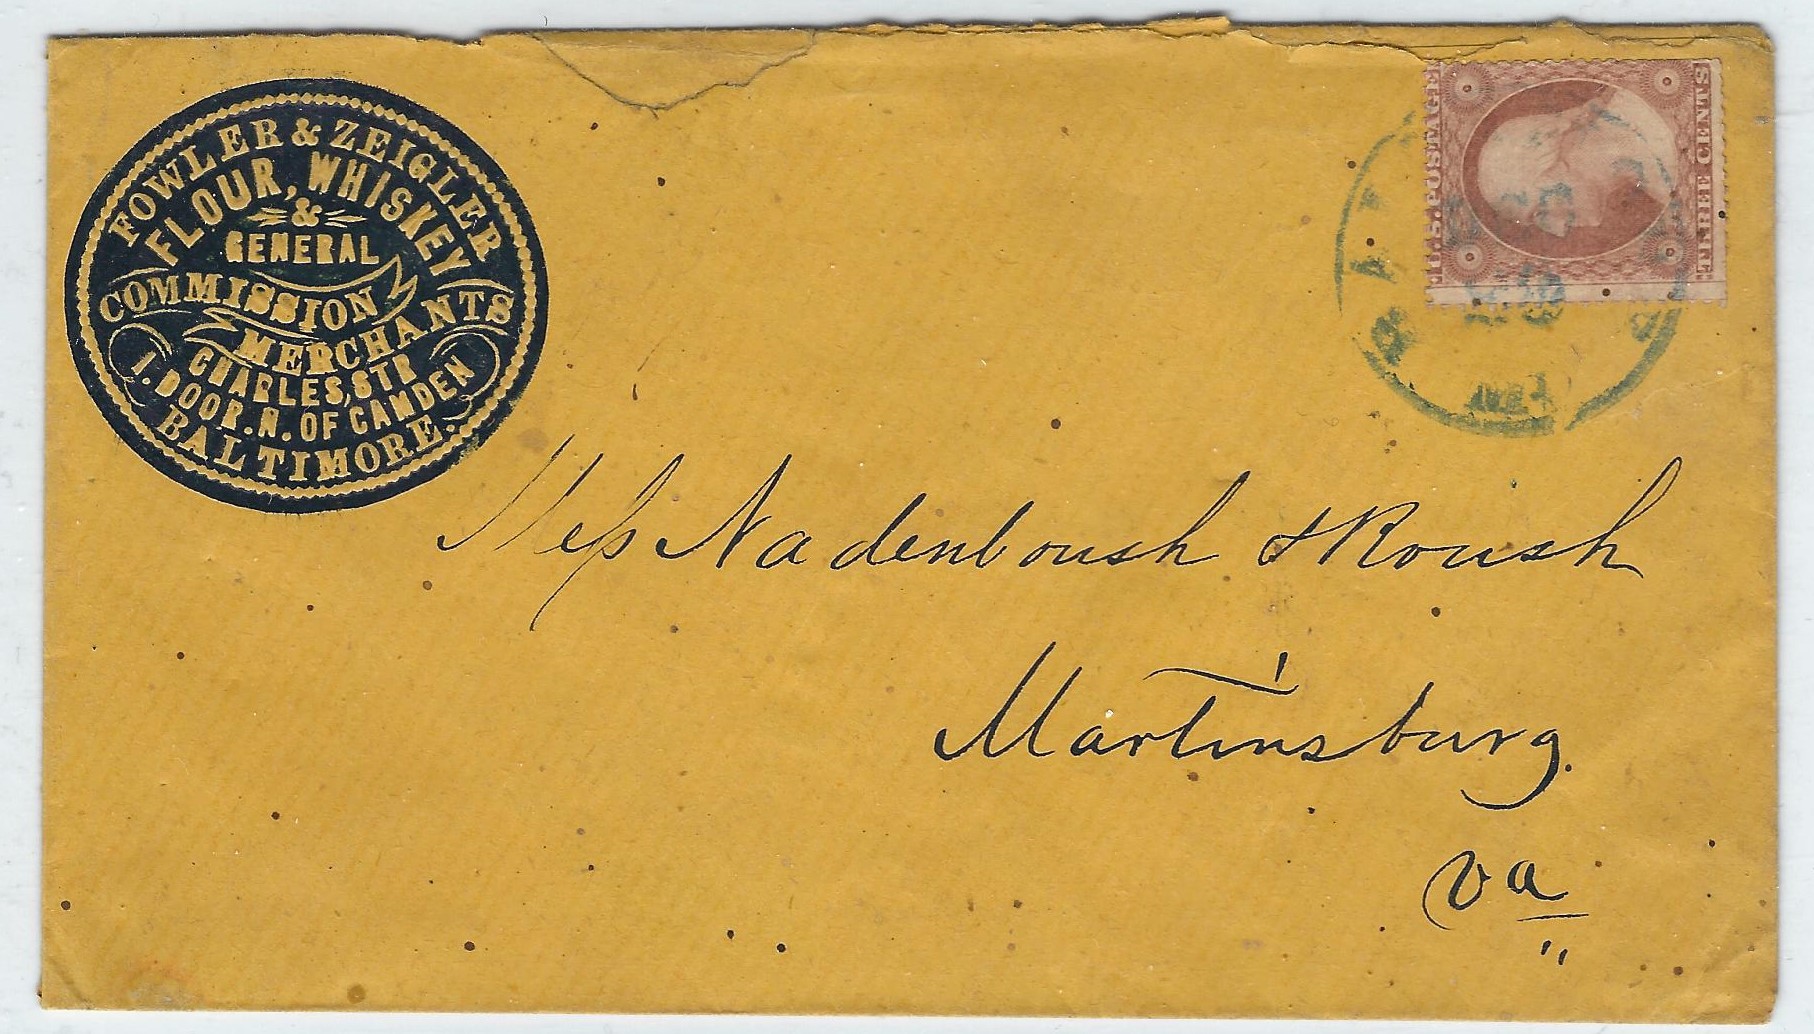 FOWLER & ZEIGLER
FLOUR, WHISKEY
&
GENERAL
COMMISSION
MERCHANTS
CHARLES, STR
1. DOOR. N. OF CAMDEN
BALTIMORE.
U.S. POSTAGE
THREE CENTS
Mess Nadenboush & Roush
Martinsburg.
Va